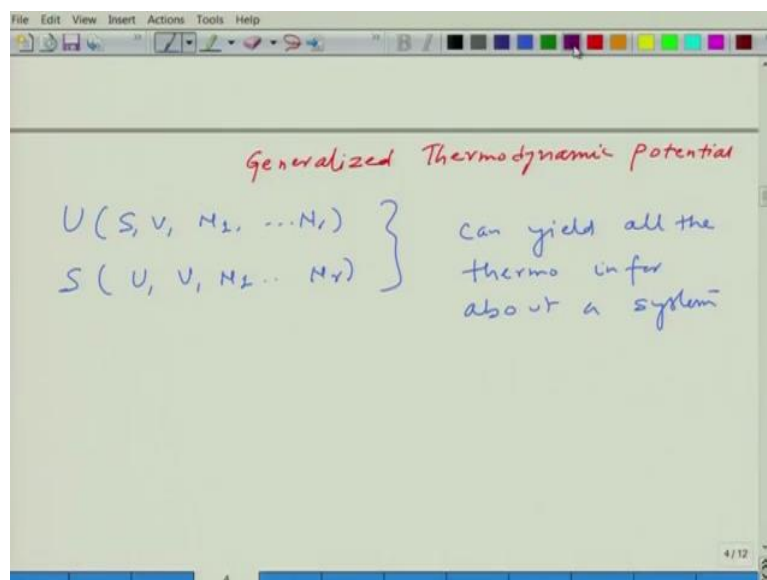 File Edit View Insert Actions Tools Help
Generalized Thermodynamic Potential
U(S, V, N1, ... Nr) } can yield all the
S(U, V, N1 .. Nr) thermo infor
about a system
4/12